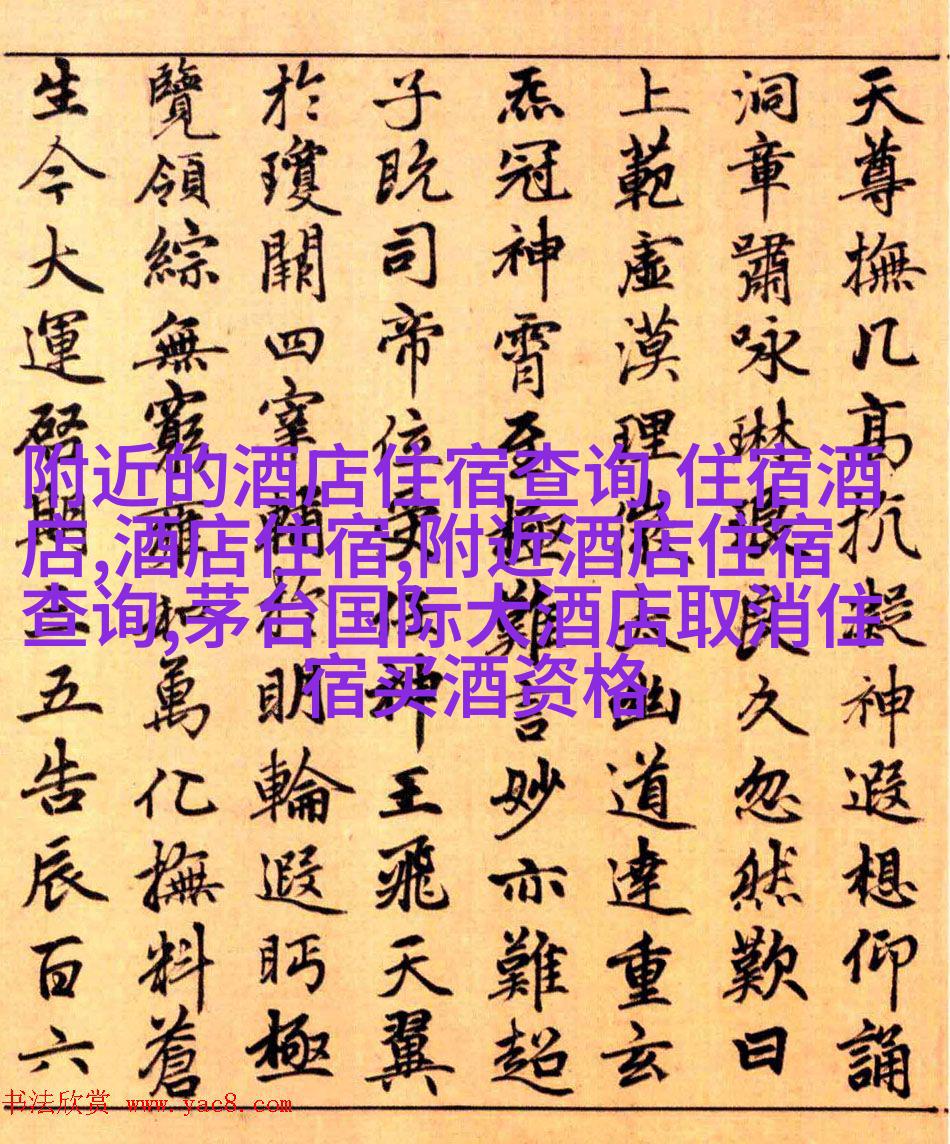 天尊撫几高抗凝神遐想仰誦
洞章嘯咏琳琅良久忽然歎曰
上範虛漠理微太幽道達重玄
炁冠神霄至極難言妙亦難超
子既司帝位受任神王飛天翼
於瓊闕四宰輔於明輪遐眄極
覽領綜無窮萬化撫料蒼
生今大運啓期三五告辰百六
附近的酒店住宿查询,住宿酒
店,酒店住宿,附近酒店住宿
查询,茅台国际大酒店取消住
宿买酒资格
书法欣赏 www.yac8.com